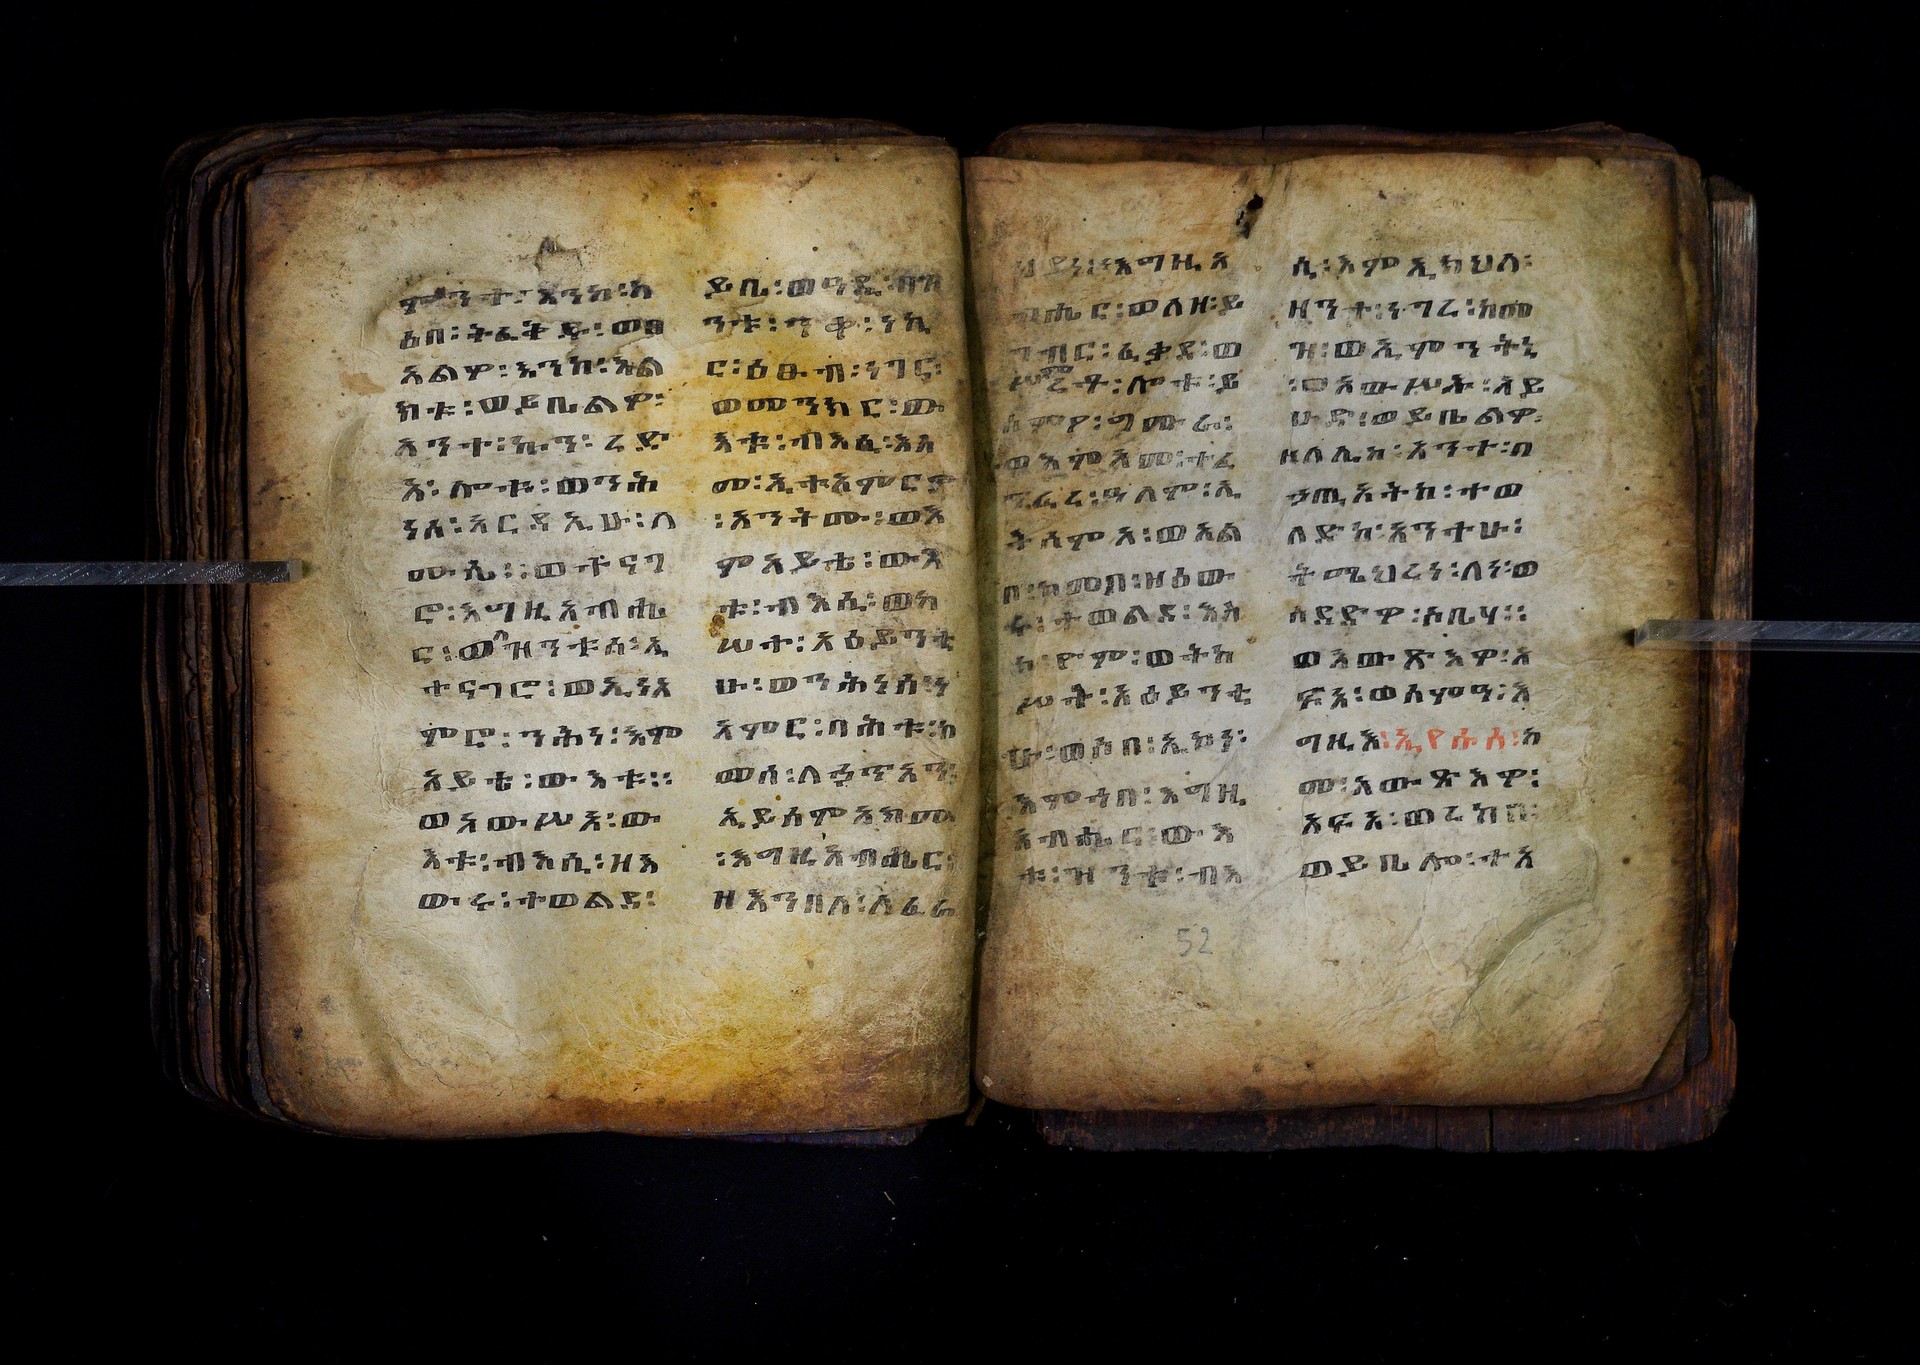 ምንተ፡እንከ፡ካ
ፅበ፡ትፈቅዱ፡ወፀ
አልዎ፡እንከ፡እል
ክቱ፡ወይቤልዎ፡
አንተ፡ኩን፡ረድ
አ፡ሎቱ፡ወንሕ
ነሰ፡አርዳኢሁ፡ለ
ሙሴ፡፡ወተናገ
ሮ፡እግዚአብሔ
ር፡ወለዝንቱሰ፡ኢ
ተናገሮ፡ወኢነአ
ምሮ፡ንሕነ፡እም
አይቴ፡ውእቱ፡፡
ወአውሥአ፡ው
እቱ፡ብእሲ፡ዘእ
ውሩ፡ተወልደ፡
ይቤ፡ወዓዲ፡ብዝ
ንቱ፡ነኪ
ር፡ዕፁብ፡ነገር፡
ወመንክር፡ው
እቱ፡ብእሲ፡እስ
መ፡ኢተአምርዎ
፡አንትሙ፡ወእ
ምአይቴ፡ውእ
ቱ፡ብእሲ፡ወከ
ሠተ፡አዕይንቲ
ሁ፡ወንሕነሰ፡ነ
አምር፡በሕቱ፡ከ
መሰ፡ለኃጥአን፡
ኢይሰምዖሙ
፡እግዚአብሔር፡
ዘእንበለ፡ለፈራ
ህያነ፡እግዚአ
ብሔር፡ወለዘ፡ይ
ገብር፡ፈቃዶ፡ወ
ሥምረቶ፡ሎቱ፡ይ
ሰምዖ፡ግሙራ፡
ወእምአመ፡ተፈ
ጥረ፡ዓለም፡ኢ
ትሰምአ፡ወአል
ቦ፡ከመቦ፡ዘዕው
ሩ፡ተወልደ፡እስ
ከ፡ዮም፡ወትከ
ሥት፡አዕይንቲ
ሁ፡ወሶበ፡ኢኮነ፡
እምኀበ፡እግዚ
አብሔር፡ውእ
ቱ፡ዝንቱ፡ብእ
ሲ፡እምኢክህለ፡
ዘንተ፡ነጊረ፡ከመ
ዝ፡ወኢምንትኒ
፡ወአውሥኡ፡አይ
ሁድ፡ወይቤልዎ፡
ዘለሊከ፡አንተ፡በ
ኃጢአትከ፡ተወ
ለድከ፡አንተሁ፡
ትሜህረነ፡ለነ፡ወ
ሰደድዎ፡ሶቤሃ፡፡
ወአውጽአዎ፡አ
ፍአ፡ወሰምዓ፡እ
ግዚእ፡ኢየሱስ፡ከ
መ፡አውጽአዎ፡
አፍአ፡ወረከቦ፡
ወይቤሎ፡ተአ
52